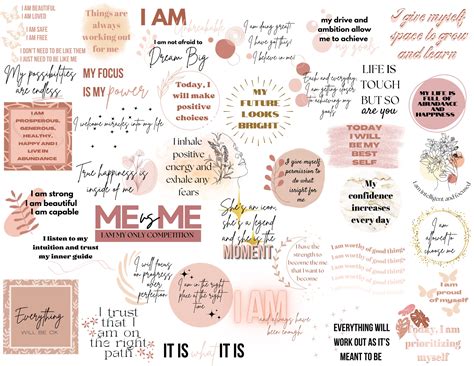 I AM BEAUTIFUL
I AM LOVED
I AM SAFE
I AM FREE
I DON'T NEED TO BE LIKE THEM
I JUST NEED TO BE LIKE ME
Things are
always working
out for me
I AM
I am doing great
I have got this
I believe in me
my drive and
ambition allow
me to achieve
my goals
I give myself
space to grow
and learn
My possibilities
are endless
MY FOCUS
IS MY power
I am not afraid to
Dream Big
Today, I will
make positive
choices
MY
FUTURE
LOOKS
BRIGHT
Each and everyday,
I am getting closer
to achieving
my goals
LIFE IS
TOUGH
BUT SO
ARE YOU
MY LIFE IS
FULL OF
ABUNDANCE
AND
HAPPINESS
I AM
PROSPEROUS,
GENEROUS,
HEALTHY,
HAPPY AND I
LIVE IN
ABUNDANCE
I welcome miracles into my life
True happiness is
inside of me
I inhale
positive
energy and
exhale any
fears
I give myself
permission to
do what
is right for
me
TODAY
I WILL
BE MY
BEST
SELF
I am strong
I am beautiful
I am capable
ME vs ME
I AM MY ONLY COMPETITION
She's an icon,
she's a legend
and she is the
MOMENT
My
confidence
increases
every day
I am intelligent and
I listen to my
intuition and trust
my inner guide
I have the
strength to
become the me
that I want to
become
I am worthy of good things
I am worthy of good things
I am worthy of good things
I am
allowed to
change me
I will focus
on progress
over
perfection
I am in the right
place at the right
time
I AM
and always have
been enough
I am
proud of
myself
Everything
WILL BE OK
I trust
that I
am on
the right
path
IT IS what IT IS
EVERYTHING WILL
WORK OUT AS IT'S
MEANT TO BE
Today, I am
prioritizing
myself